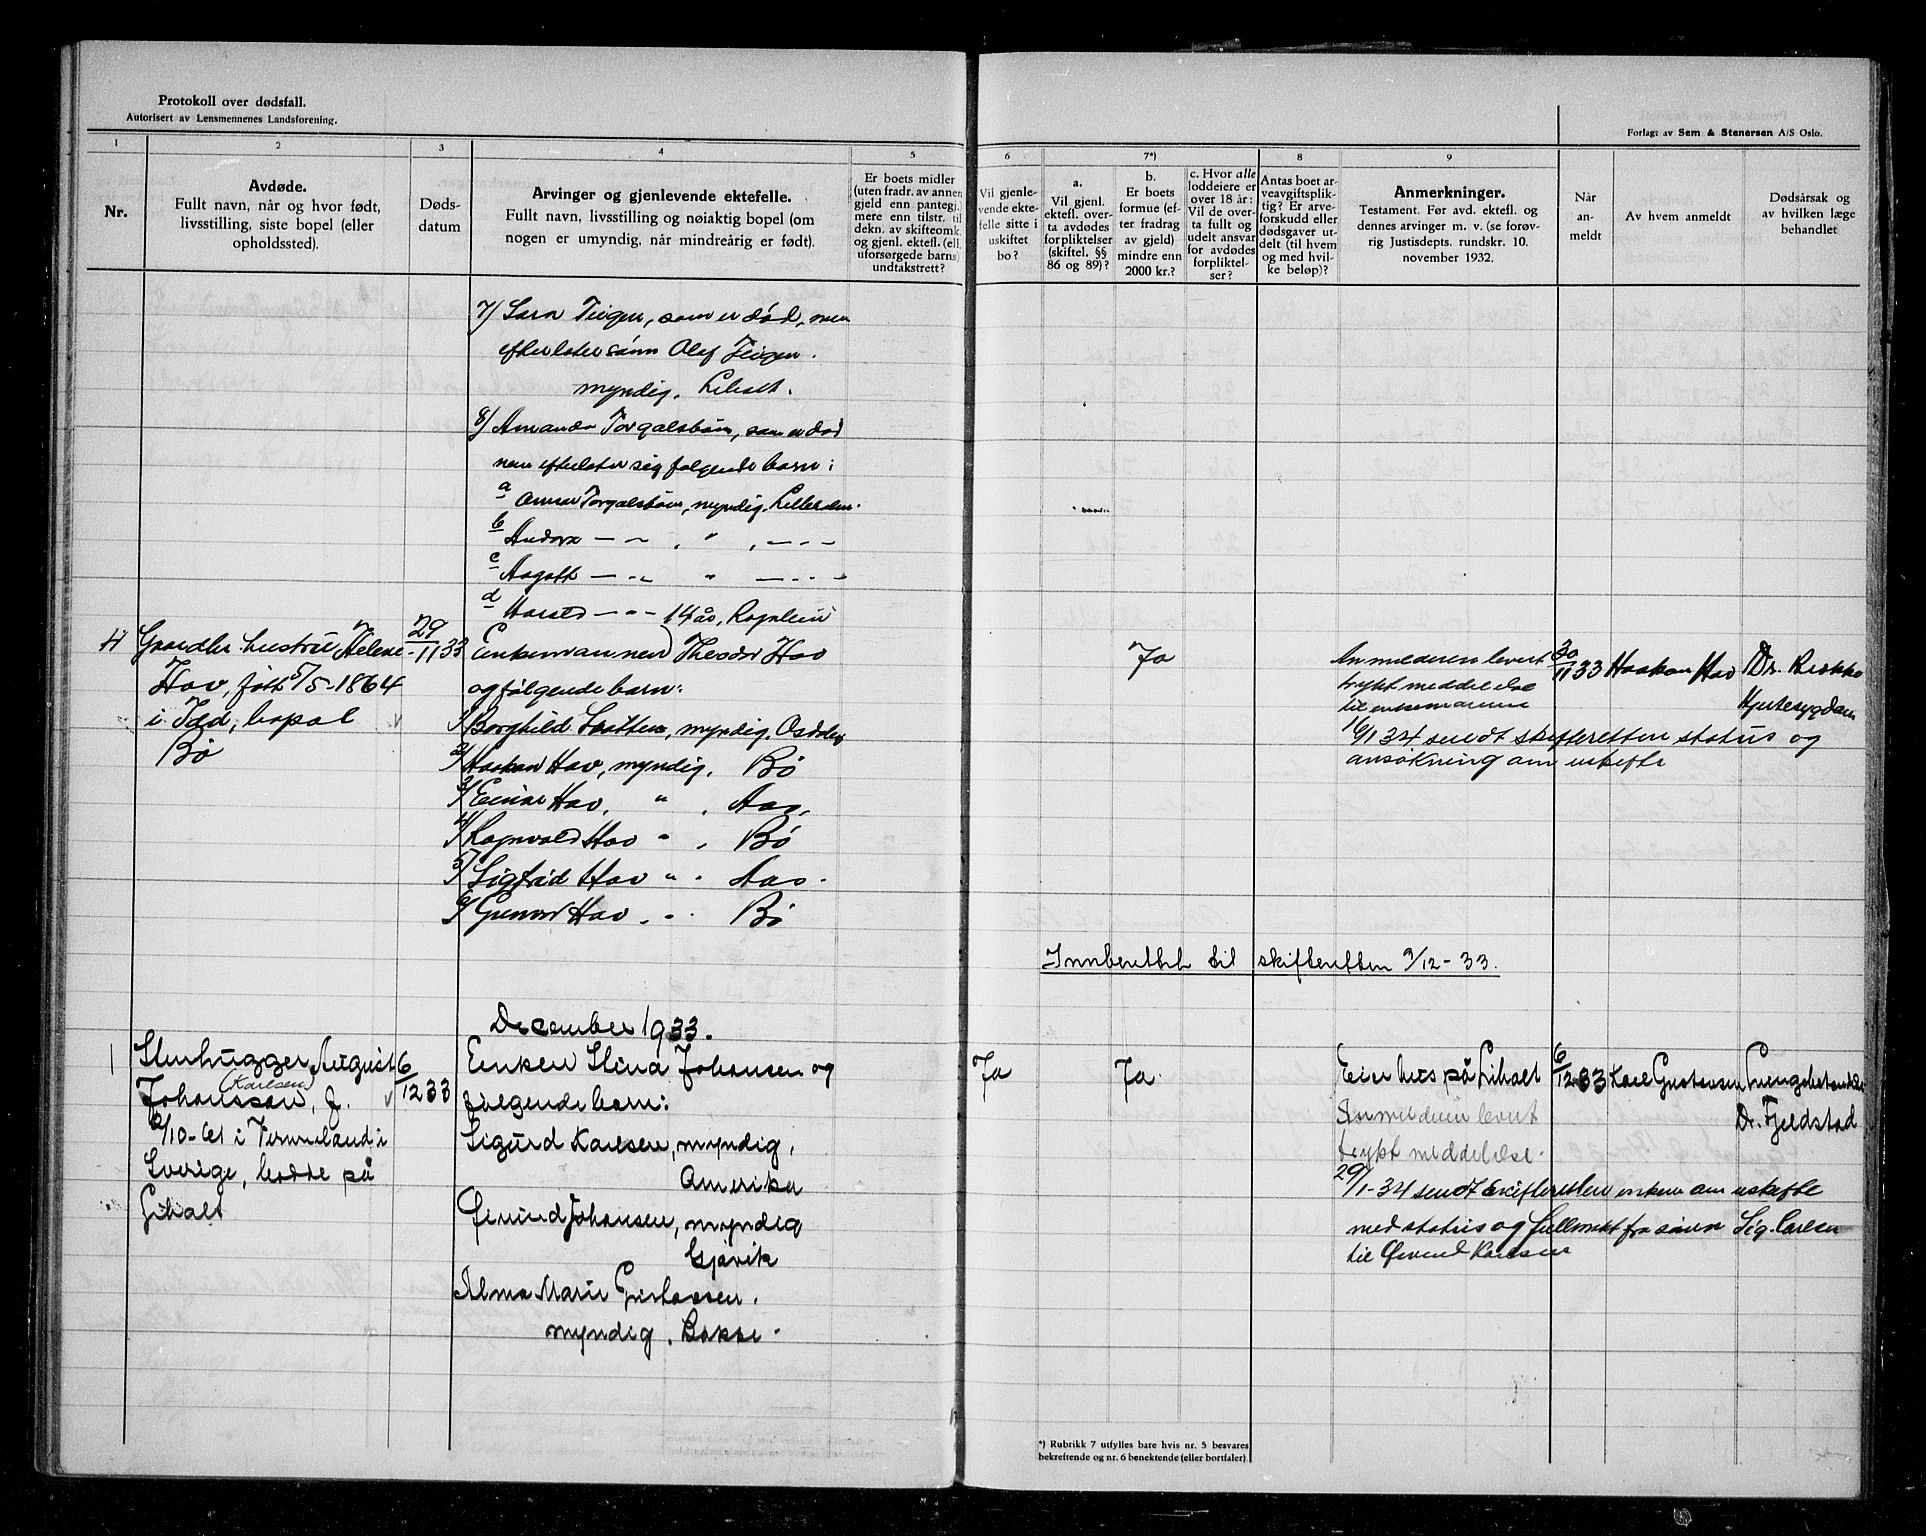 Protokoll over dødsfall.
Autorisert av Lensmennenes Landsforening.
Forlagt av Sem & Stenersen A/S Oslo.
1
2
3
4
5
6
7*)
8
9
Nr.
Avdøde.
Fullt navn, når og hvor født,
livsstilling, siste bopel (eller
opholdssted).
Døds-
datum
Arvinger og gjenlevende ektefelle.
Fullt navn, livsstilling og nøiaktig bopel (om
nogen er umyndig, når mindreårig er født).
Er boets midler
(uten fradr. av annen
gjeld enn pantegj.)
mere enn tilstr. til
dekn. av skifteomk.
og gjenl. ektef. (ell.
uforsørgede barns)
undtakstrett?
Vil gjenle-
vende ekte-
felle sitte i
uskiftet
bo?
a.
Vil gjenl.
ektefl. over-
ta avdødes
forpliktelser
(skiftel. §§
86 og 89)?
b.
Er boets
formue (ef-
ter fradrag
av gjeld)
mindre enn
2000 kr.?
c. Hvor alle
loddeiere er
over 18 år:
Vil de over-
ta fullt og
udelt ansvar
for avdødes
forpliktel-
ser?
Antas boet ar-
veavgiftsplik-
tig? Er arve-
forskudd eller
dødsgaver ut-
delt (til hvem
og med hvil-
ke beløp)?
Anmerkninger.
Testament. Før avd. ektefl. og
dennes arvinger m. v. (se forøv-
rig Justisdepts. rundskr. 10.
november 1932.
Når
an-
meldt
Av hvem anmeldt
Dødsårsak og
av hvilken læge
behandlet
7) Sara Teigen, som er død, men
efterlater sønn Olaf Teigen.
myndig.
8) Amanda Torgalsbøen, som er død
men efterlater sig følgende barn:
a Torgalsbøen, myndig.
b
c Aagoth
d Harald 14 år,
4 Gaardbr. hustru Helene
Hov, født 5/5-1864
i Idd, bopæl
Bø
29/11 33
Enkemannen Theodor Hov
og følgende barn:
1) Borghild myndig.
2) Haakon Hov, myndig. Bø
3) Einar Hov, " . Aas.
4) Ragnvald Hov " . Bø
5) Sigfrid Hov " . Aas.
6) Gunvor Hov . " Bø
Ja
Anmelderen levert
trykt meddelelse
til enkemannen
16/1 34 sendt skifteretten status og
ansøkning om uskifte
30/11 33
Haakon Hov
Dr.
Hjertesygdom
Innberettet til skifteretten 9/12-33.
December 1933.
1 Stenhugger August
Johansson, f.
(Karlsen)
/10-61 i Vermeland i
Sverige, bodde på
6/12 33
Enken Stina Johansen og
følgende barn:
Sigurd Karlsen, myndig,
Amerika
Øivind Johansen, myndig
Gjøvik
Alma Marie
myndig.
Ja
Ja
Eier hus på
Anmelderen levert
trykt meddelelse.
29/1-34 sendt skifteretten enken om uskifte
med status og fullmakt fra sønn Sig. Carlsen
til Øivind Karlsen
6/12-33
Karl Gustavsen
Dr. Fjeldstad
*) Rubrikk 7 utfylles bare hvis nr. 5 besvares
bekreftende og nr. 6 benektende (eller bortfaler)